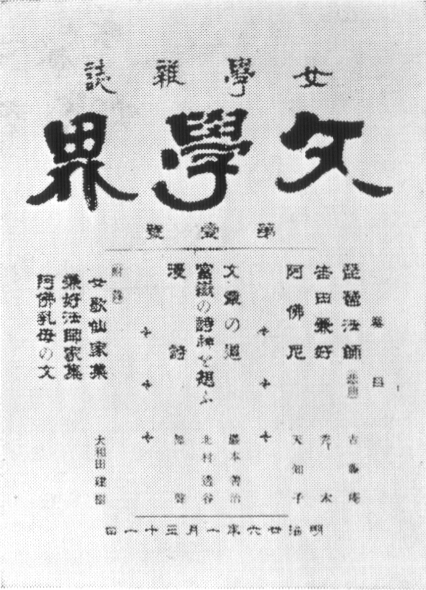 女學雜誌
文學界
第壹號
目録
琵琶法師 悲曲 古藤庵
吉田兼好 禿木
阿佛尼 天知子
文章の道 巖本善治
富嶽の詩神を想ふ 北村透谷
漫詩 無聲
附錄
女歌仙家集
兼好法師家集
阿佛乳母の文
大和田建樹
明治廿六年一月三十一日